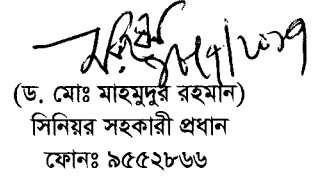 (ড. মোঃ মাহমুদুর রহমান)
সিনিয়র সহকারী প্রধান
ফোনঃ ৯৫৫২৮৬৬